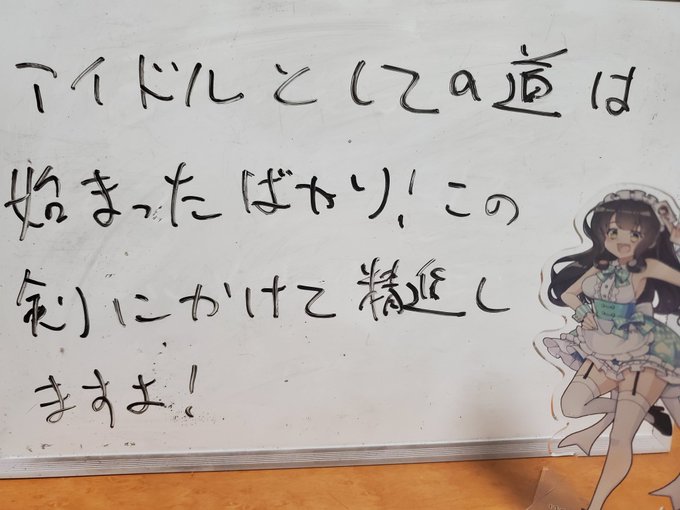 アイドルとしての道は
始まったばかり!この
剣にかけて精進し
ますよ!